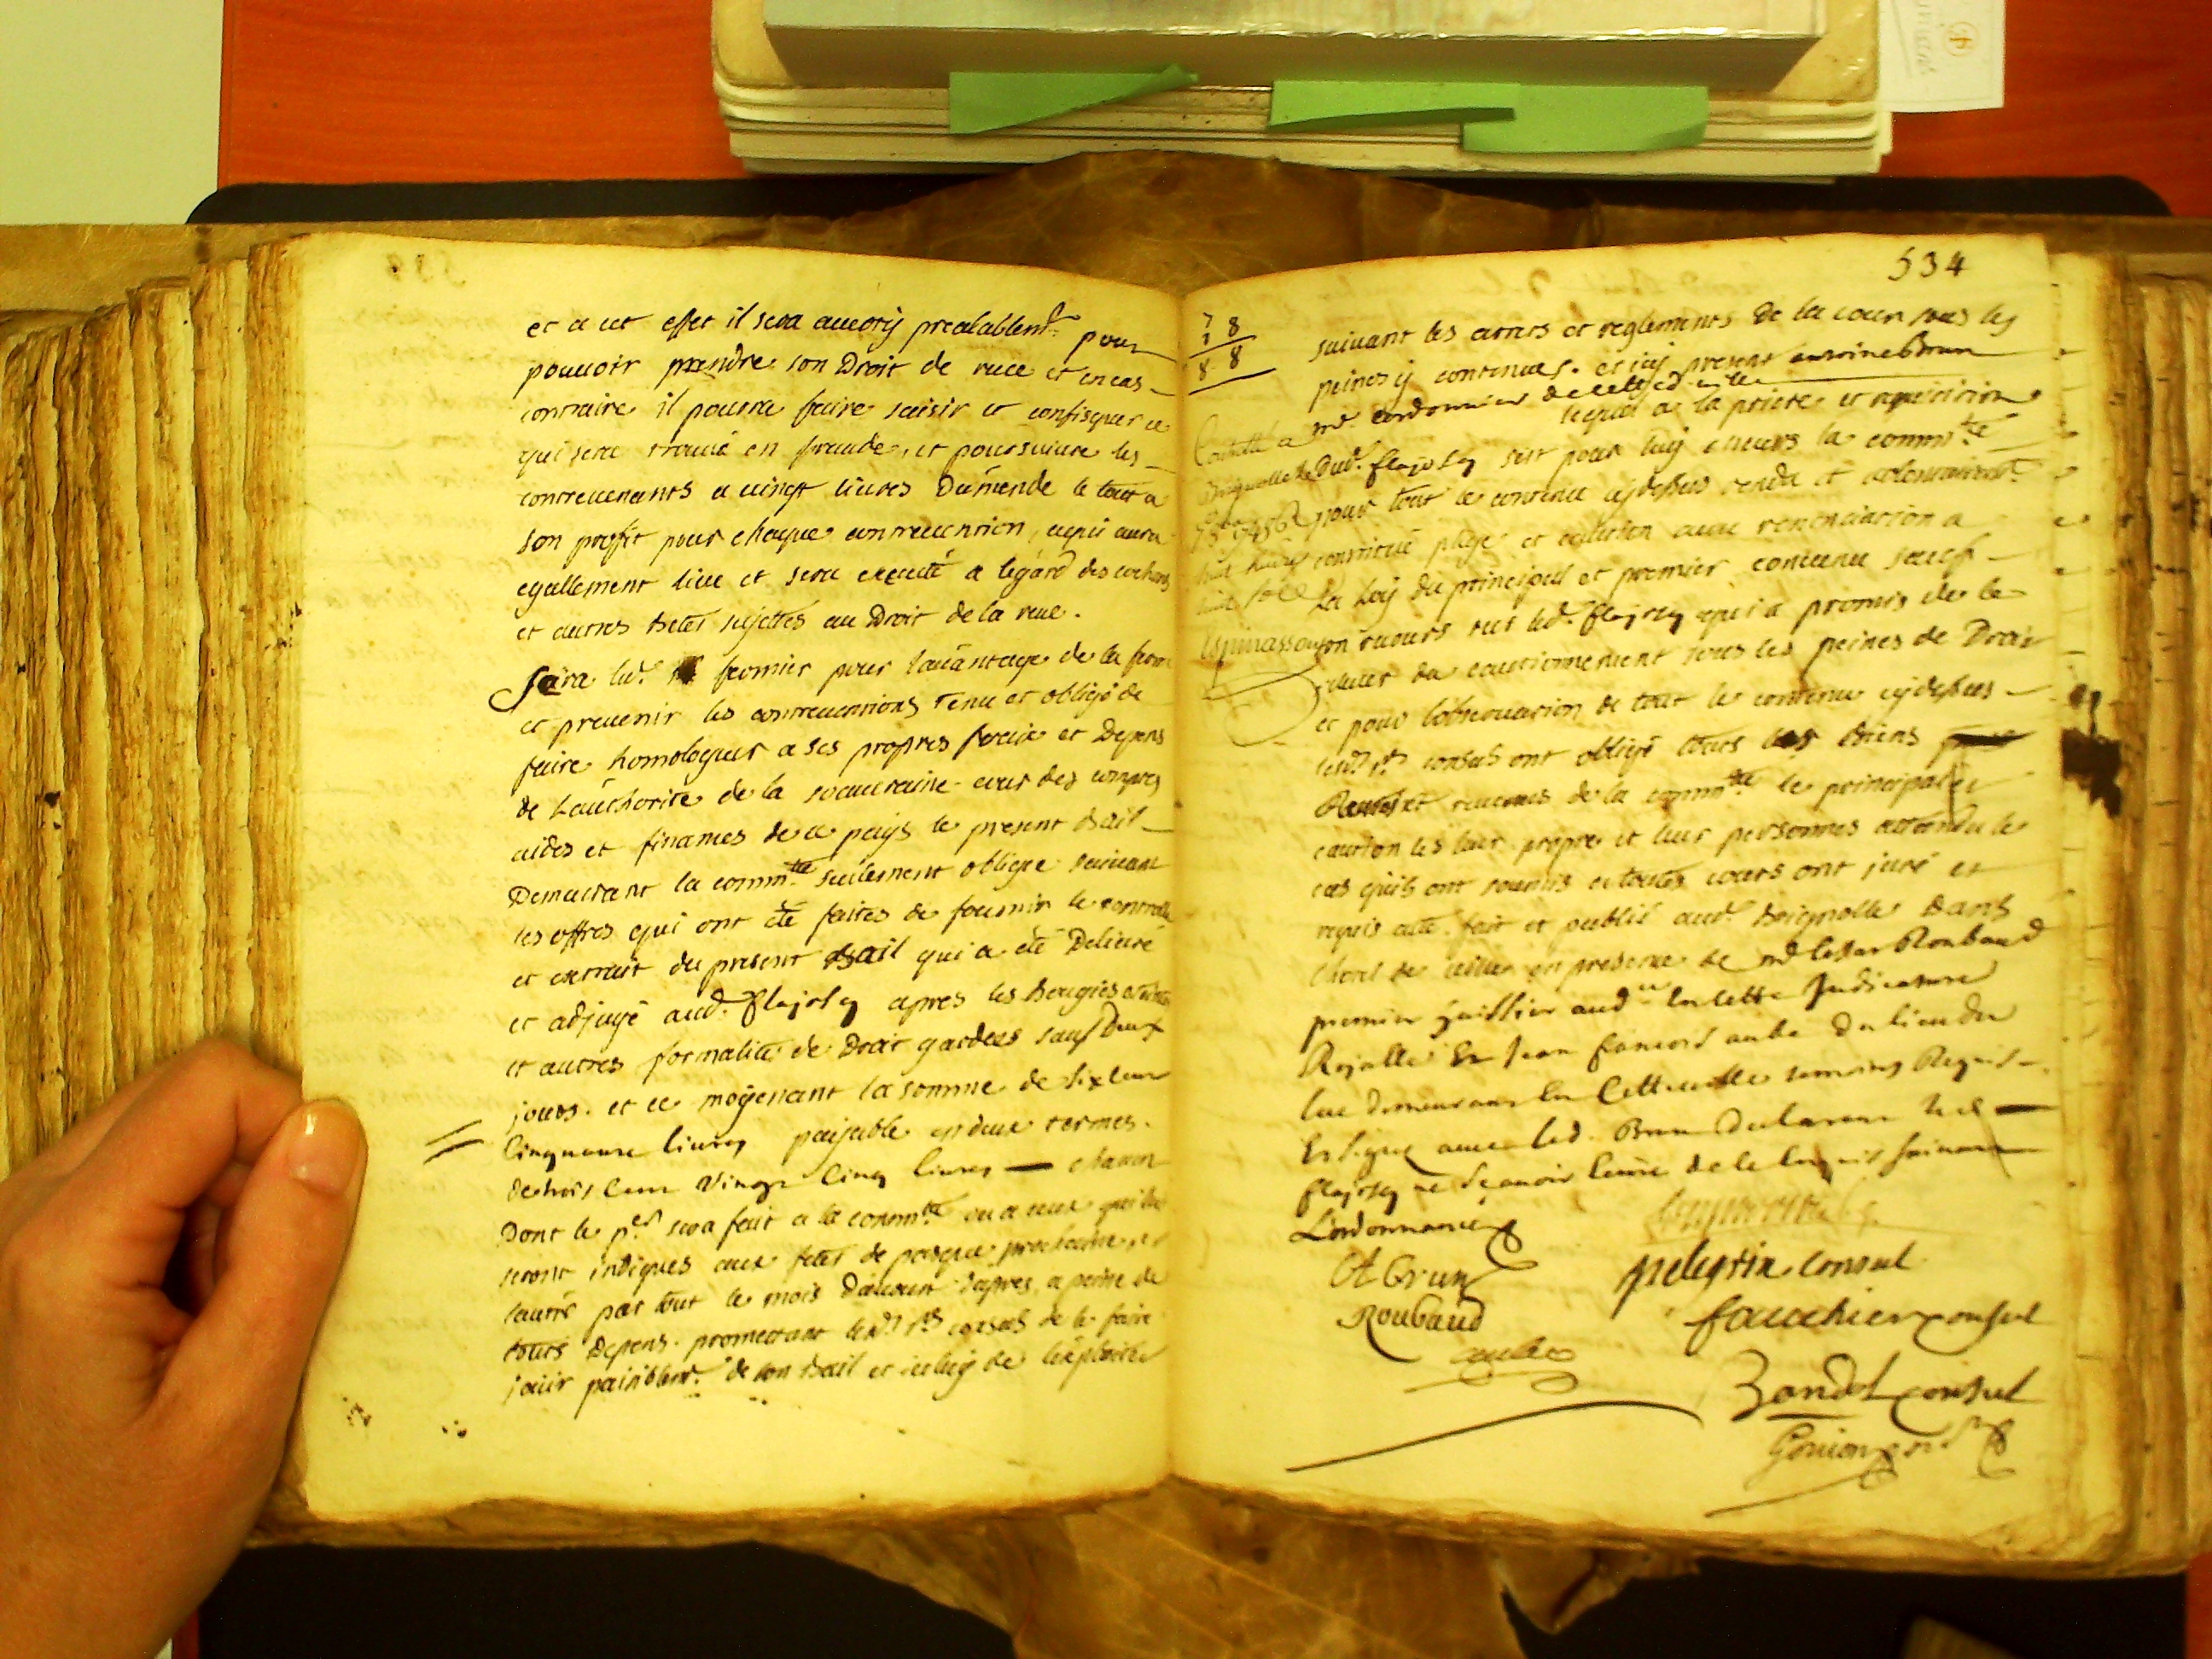 et a cet effet il sera averty prealablemt. pour
pouvoir prendre son Droit de reve et en cas
contraire il pourra faire saisir et confisquer ce
qui sera trouvé en fraude, et poursuivre les
contrevenants a vingt livres Damende le tout a
son proffit pour chaque contrevention, ce qui aura
egallement lieu et sera executé a legard des cochons
et autres betes sujettes au Droit de la reve.
Sera led. fermier pour lavantage de la ferme
et prevenir les contreventions tenu et obligé de
faire homologuer a ses propres fraix et Depens
de Lauthorité de la souveraine cour des comptes
aides et finances de ce pays le present bail
Demeurant la commté seulement obligée suivant
les offres qui ont été faites de fournir le controlle
et extrait du present Bail qui a été Delivré
et adjugé aud. flajosq apres les bougies eteintes
et autres formalités de Droit gardees sauf Deux
jours. et ce moyenant la somme de six cent
Cinquante livres payable en deux termes.
de trois Cent Vingt Cinq livres — chacun
Dont le pr. sera fait a la commté ou a ceux qui luy
seront indiqués aux fetes de pasque prochaine, et
lautre par tout le mois daoust dapres, a peine de
touts Depens. promettant lesd. srs consuls de le faire
jouir paisiblemt. de son bail et iceluy de lexploiter
534
7 8
1
8 8
suivant les arrets et reglements de la cour sous les
peines y contenues. et icy present antoine Brun
me cordonnier de cette ville
lequel a la priere et requisition
Dud. flajosq sest pour luy envers la commté
pour tout le contenu cy dessus rendu et volontairemt.
constitué plege et caution avec renonciation a
La Loy du principal et premier convenu sauf
son recours sur led. flajosq qui a promis de le
relever du cautionnement sous les peines de Droit
et pour lobservation de tout le contenu cy dessus
lesd. srs consuls ont obligé touts les biens
Rentes et revenus de la commté le principal et
caution les leur propre et leur personnes attendu le
cas quils ont soumis a toutes cours ont juré et
requis acte. fait et publié aud. Brignolle Dans
lhotel de ville en presence de me Cesar Roubaud
premier huissier en cette Judicature
Royalle Et Jean francois aube Du lieu du
luc demeurant En Cette ville temoins Requis
Et signé avec led. Brun Declarant led.
flajosq ne scavoir Ecrire de ce Enquis suivant
Lordonnance
Controllé a
Brignolle le
1756
huit livres
huit sols
Espinasson
A Brun
Roubaud
aube
pelegrin consul
fauchier consul
Bandol consul
Goujon